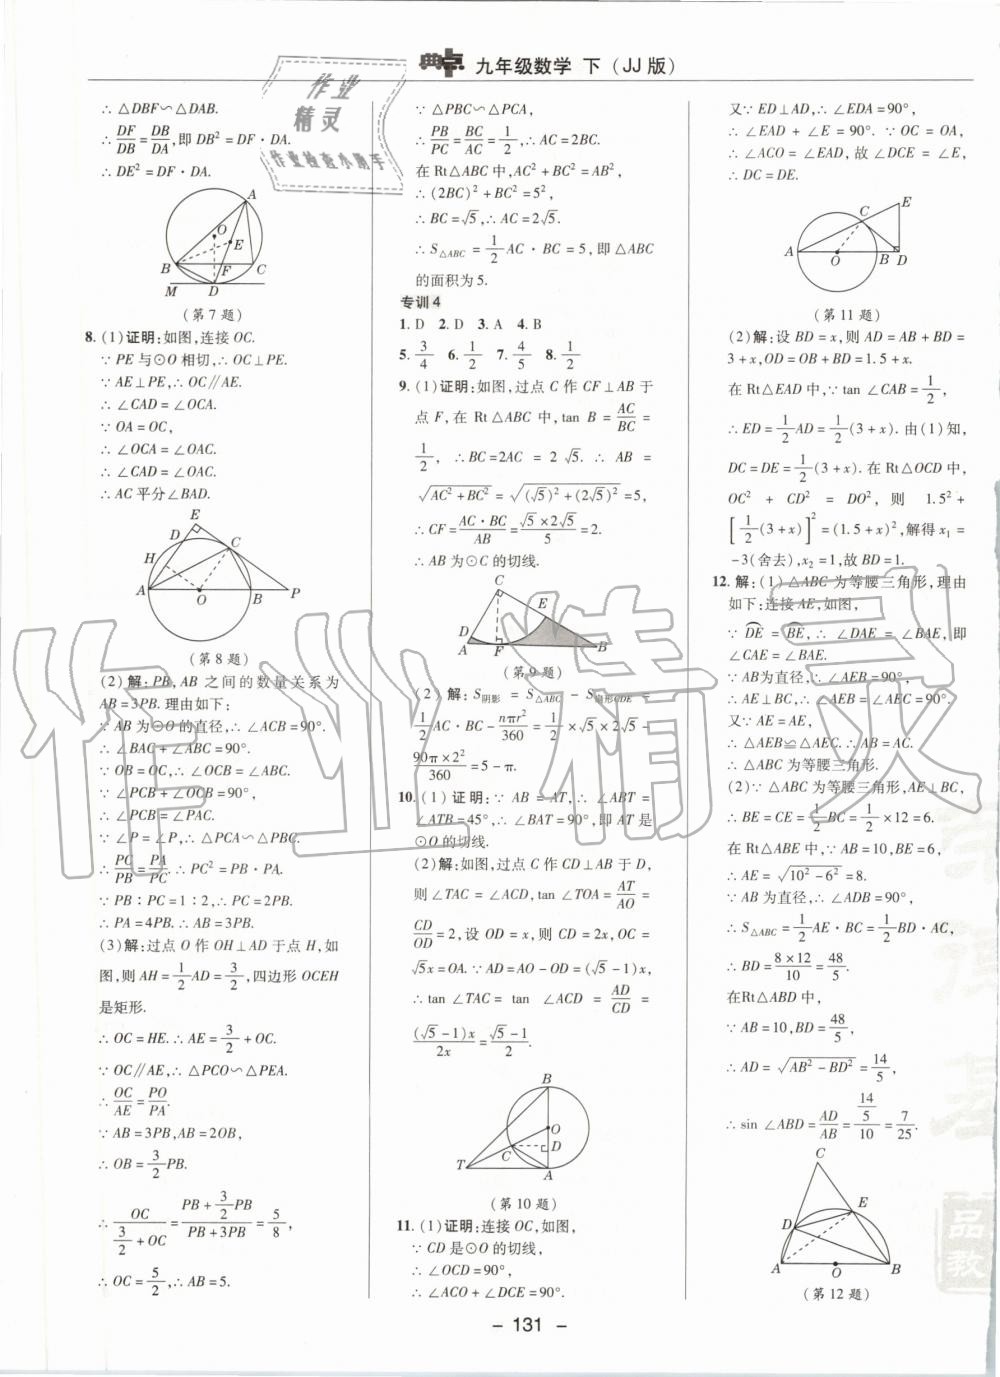 典点 九年级数学 下（JJ版）
作业
精灵
作业检查小助手
∴△DBF∽△DAB.
∴DF/DB=DB/DA,即DB²=DF·DA.
∴DE²=DF·DA.
A
O
E
B F C
M D
(第7题)
8. (1)证明:如图,连接OC.
∵PE与⊙O相切,∴OC⊥PE.
∵AE⊥PE,∴OC∥AE.
∴∠CAD=∠OCA.
∵OA=OC,
∴∠OCA=∠OAC.
∴AC平分∠BAD.
E
D
C
H
A O B P
(第8题)
(2)解:PB,AB之间的数量关系为
AB=3PB.理由如下:
∵AB为⊙O的直径,∴∠ACB=90°.
∴∠BAC+∠ABC=90°.
∵OB=OC,∴∠OCB=∠ABC.
∵∠PCB+∠OCB=90°,
∴∠PCB=∠PAC.
∵∠P=∠P,∴△PCA∽△PBC.
∴PC/PB=PA/PC.∴PC²=PB·PA.
∵PB∶PC=1∶2,∴PC=2PB.
∴PA=4PB.∴AB=3PB.
(3)解:过点O作OH⊥AD于点H,如
图,则AH=1/2AD=3/2,四边形OCEH
是矩形.
∴OC=HE.∴AE=3/2+OC.
∵OC∥AE,∴△PCO∽△PEA.
∴OC/AE=PO/PA.
∵AB=3PB,AB=2OB,
∴OB=3/2PB.
∴OC/(3/2+OC)=(PB+3/2PB)/(PB+3PB)=5/8,
∴OC=5/2,∴AB=5.
∵△PBC∽△PCA,
∴PB/PC=BC/AC=1/2,∴AC=2BC.
在Rt△ABC中,AC²+BC²=AB²,
∴(2BC)²+BC²=5²,
∴BC=√5,∴AC=2√5.
∴S△ABC=1/2AC·BC=5,即△ABC
的面积为5.
专训4
1. D 2. D 3. A 4. B
5. 3/4 6. 1/2 7. 4/5 8. 1/2
9. (1)证明:如图,过点C作CF⊥AB于
点F,在Rt△ABC中,tan B=AC/BC=
1/2,∴BC=2AC=2√5.∴AB=
√(AC²+BC²)=√((√5)²+(2√5)²)=5,
∴CF=AC·BC/AB=√5×2√5/5=2.
∴AB为⊙C的切线.
C
E
D
A F B
(第9题)
(2)解:S阴影=S△ABC-S扇形CDE=
1/2AC·BC-nπr²/360=1/2×√5×2√5-
90π×2²/360=5-π.
10. (1)证明:∵AB=AT,∴∠ABT=
∠ATB=45°,∴∠BAT=90°,即AT是
⊙O的切线.
(2)解:如图,过点C作CD⊥AB于D,
则∠TAC=∠ACD,tan∠TOA=AT/AO=
CD/OD=2,设OD=x,则CD=2x,OC=
√5x=OA.∵AD=AO-OD=(√5-1)x,
∴tan∠TAC=tan∠ACD=AD/CD=
(√5-1)x/2x=(√5-1)/2.
B
O
C D
T A
(第10题)
11. (1)证明:连接OC,如图,
∵CD是⊙O的切线,
∴∠OCD=90°,
∴∠ACO+∠DCE=90°.
又∵ED⊥AD,∴∠EDA=90°,
∴∠EAD+∠E=90°.∵OC=OA,
∴∠ACO=∠EAD,故∠DCE=∠E,
∴DC=DE.
E
C
A O B D
(第11题)
(2)解:设BD=x,则AD=AB+BD=
3+x,OD=OB+BD=1.5+x.
在Rt△EAD中,∵tan∠CAB=1/2,
∴ED=1/2AD=1/2(3+x).由(1)知,
DC=DE=1/2(3+x).在Rt△OCD中,
OC²+CD²=DO²,则1.5²+
[1/2(3+x)]²=(1.5+x)²,解得x₁=
-3(舍去),x₂=1,故BD=1.
12. 解:(1)△ABC为等腰三角形,理由
如下:连接AE,如图,
∵DE=BE,∴∠DAE=∠BAE,即
∠CAE=∠BAE.
∵AB为直径,∴∠AEB=90°,
∴AE⊥BC,∴∠AEB=∠AEC=90°.
又∵AE=AE,
∴△AEB≌△AEC.∴AB=AC.
∴△ABC为等腰三角形.
(2)∵△ABC为等腰三角形,AE⊥BC,
∴BE=CE=1/2BC=1/2×12=6.
在Rt△ABE中,∵AB=10,BE=6,
∴AE=√(10²-6²)=8.
∵AB为直径,∴∠ADB=90°,
∴S△ABC=1/2AE·BC=1/2BD·AC,
∴BD=8×12/10=48/5.
在Rt△ABD中,
∵AB=10,BD=48/5,
∴AD=√(AB²-BD²)=14/5,
∴sin∠ABD=AD/AB=(14/5)/10=7/25.
C
D E
A O B
(第12题)
作业精灵
品教
- 131 -